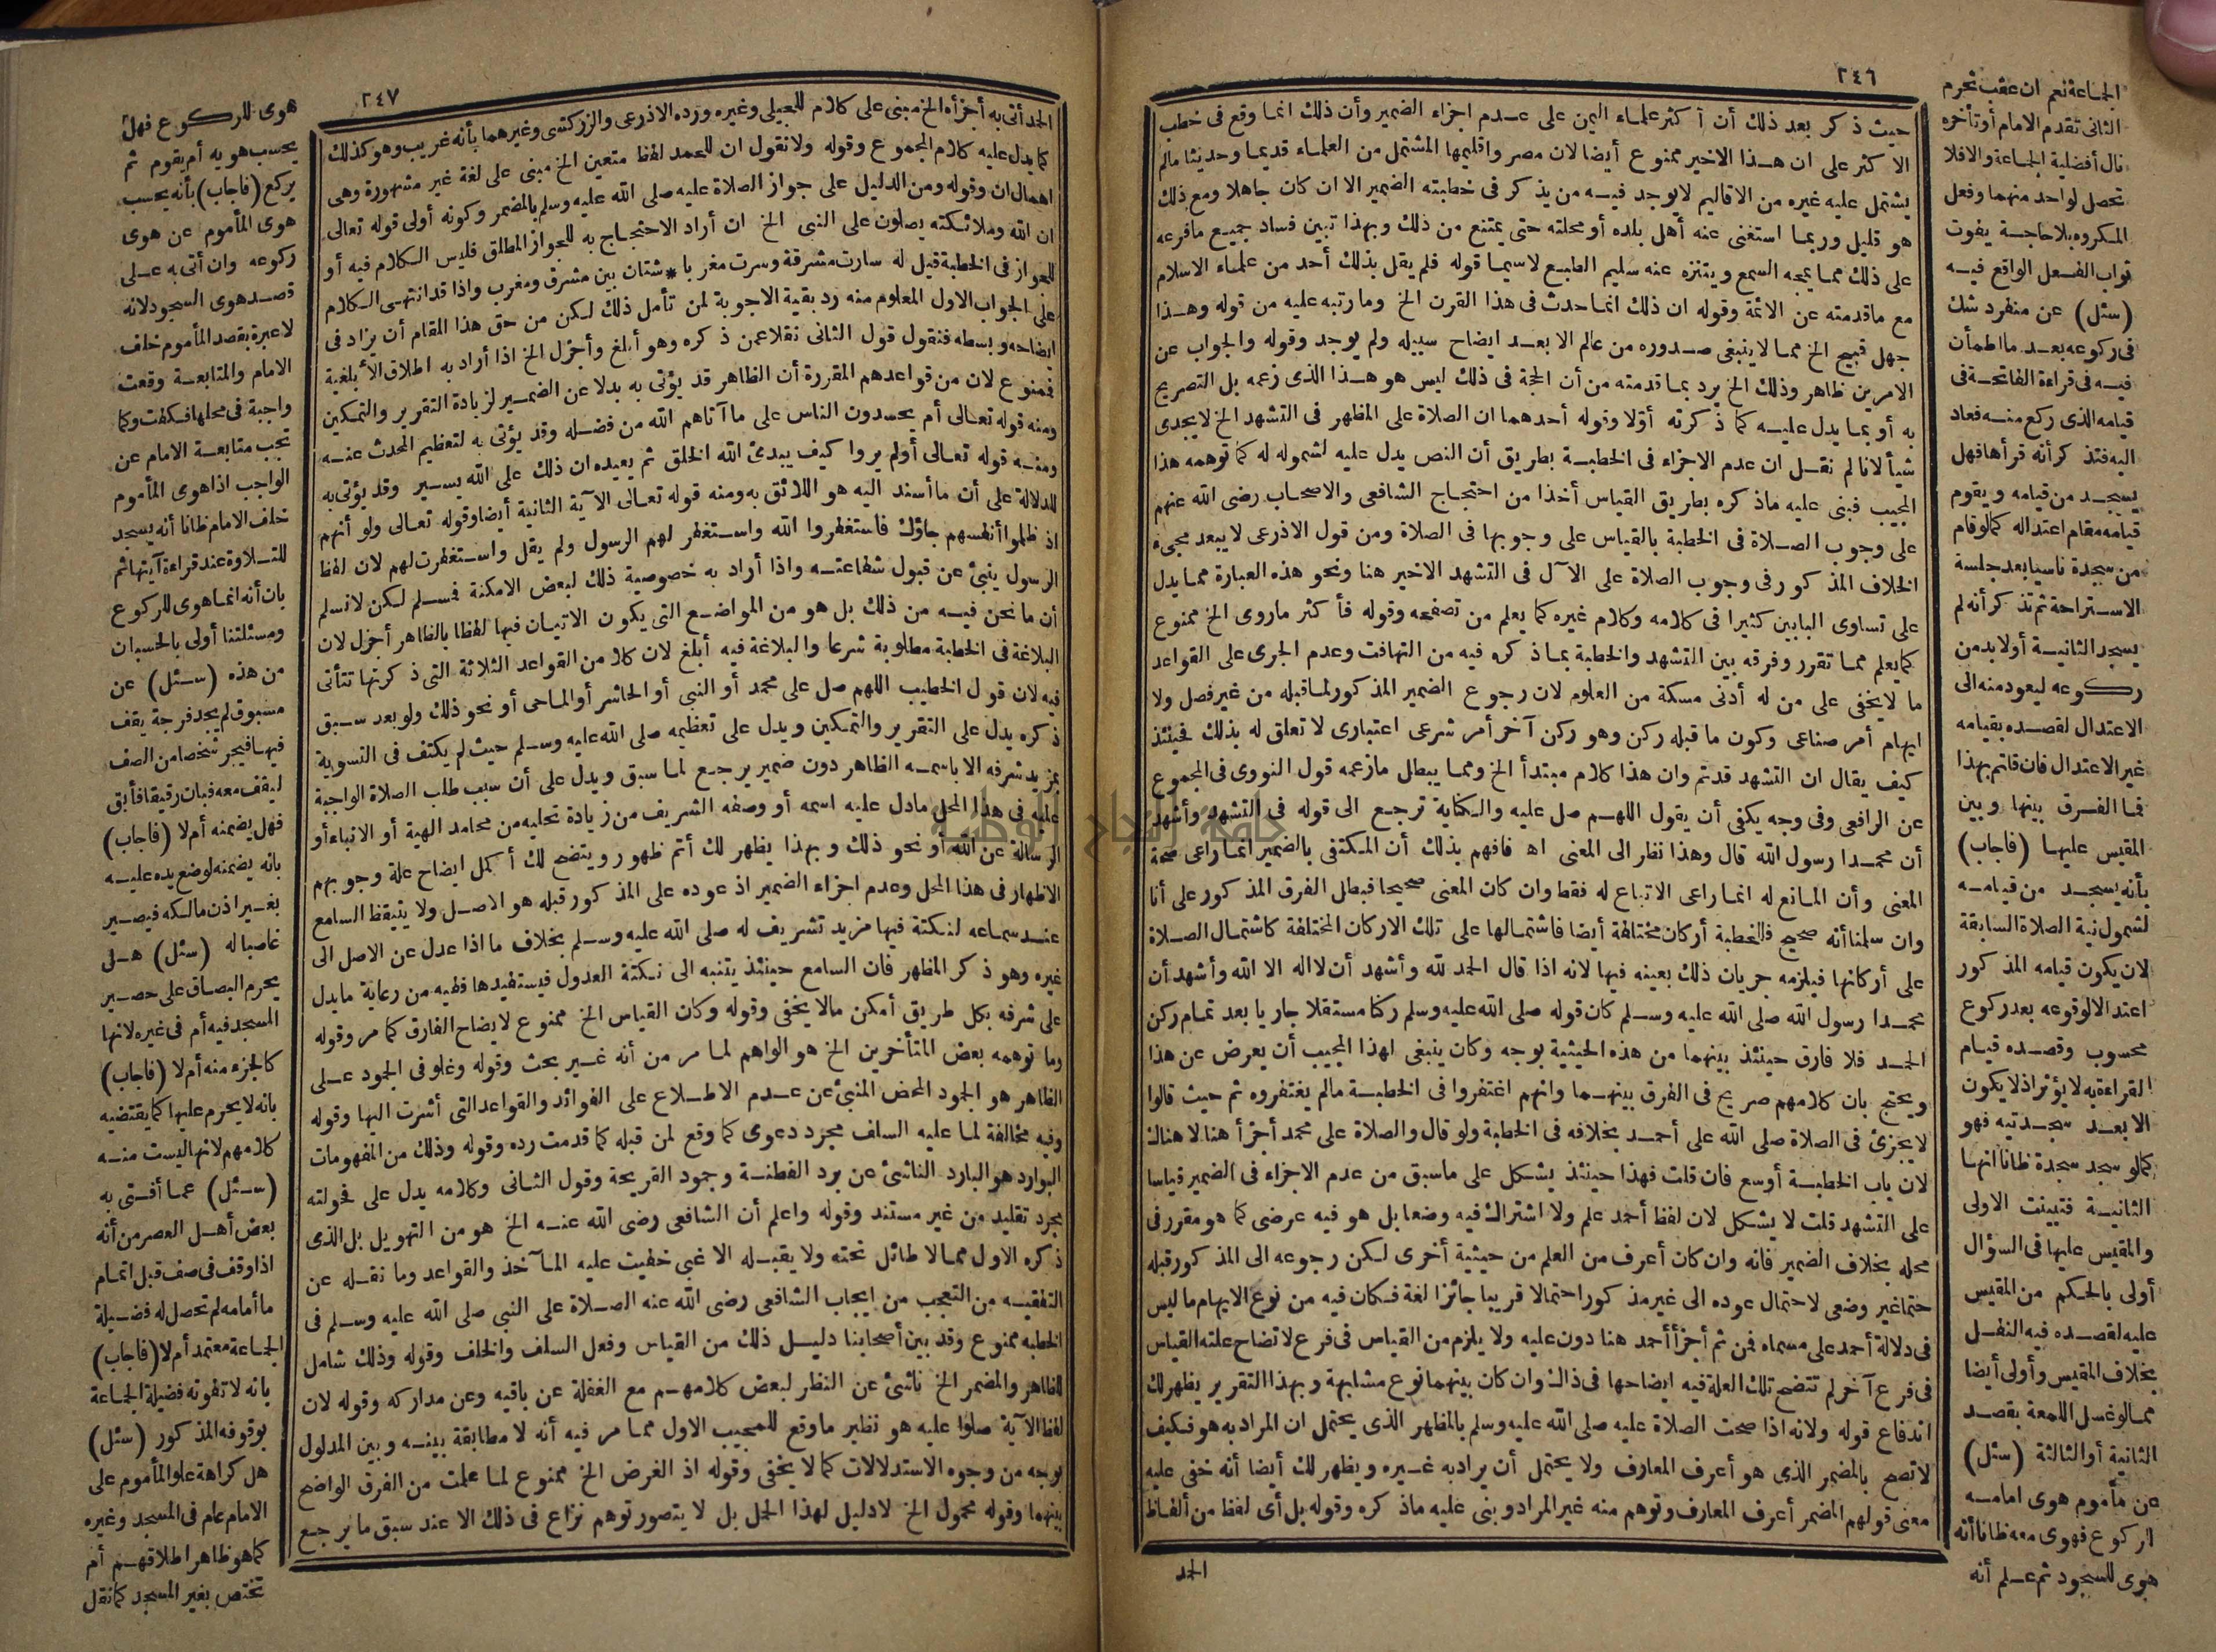 ٢٤٦
حيث ذكر بعد ذلك أن أكثر علماء اليمن على عدم اجزاء الضمير وأن ذلك انما وقع فى خطب
الاكثر على ان هذا الاخير ممنوع أيضا لان مصر واقليمها المشتمل من العلماء قديما وحديثا مالم
يشتمل عليه غيره من الاقاليم لا يوجد فيه من يذكر فى خطبته الضمير الا ان كان جاهلا ومع ذلك
هو قليل وربما استغنى عنه أهل بلده أو محلته حتى يمتنع من ذلك وبهذا تبين فساد جميع ما فرعه
على ذلك مما يمجه السمع ويتنزه عنه سليم الطبع لاسيما قوله فلم يقل بذلك أحد من علماء الاسلام
مع ما قدمته عن الائمة وقوله ان ذلك انما حدث فى هذا القرن الخ وما رتبه عليه من قوله وهذا
جهل قبيح الخ مما لا ينبغى صدوره من عالم الا بعد ايضاح سبيله ولم يوجد وقوله والجواب عن
الامرين ظاهر وذلك الخ يرد بما قدمته من أن الحجة فى ذلك ليس هو هذا الذى زعمه بل التصريح
به أو بما يدل عليه كما ذكرته أولا وقوله أحدهما ان الصلاة على المظهر فى التشهد الخ لا يجدى
شيأ لانا لم نقل ان عدم الاجزاء فى الخطبة بطريق أن النص يدل عليه لشموله له كما توهمه هذا
المجيب فبنى عليه ماذكره بطريق القياس أخذا من احتجاج الشافعى والاصحاب رضى الله عنهم
على وجوب الصلاة فى الخطبة بالقياس على وجوبها فى الصلاة ومن قول الاذرعى لا يبعد مجىء
الخلاف المذكور فى وجوب الصلاة على الآل فى التشهد الاخير هنا ونحو هذه العبارة مما يدل
على تساوى البابين كثيرا فى كلامه وكلام غيره كما يعلم من تصفحه وقوله فأكثر ماروى الخ ممنوع
كما يعلم مما تقرر وفرقه بين التشهد والخطبة بما ذكره فيه من التهافت وعدم الجرى على القواعد
ما لا يخفى على من له أدنى مسكة من العلوم لان رجوع الضمير المذكور لما قبله من غير فصل ولا
ايهام أمر صناعى وكون ما قبله ركن وهو ركن آخر أمر شرعى اعتبارى لا تعلق له بذلك فحينئذ
كيف يقال ان التشهد قد تم وان هذا كلام مبتدأ الخ ومما يبطل مازعمه قول النووى فى المجموع
عن الرافعى وفى وجه يكفى أن يقول اللهم صل عليه والكناية ترجع الى قوله فى التشهد وأشهد
أن محمدا رسول الله قال وهذا نظر الى المعنى اه فافهم بذلك أن المكتفى بالضمير انما راعى صحة
المعنى وأن المانع له انما راعى الاتباع له فقط وان كان المعنى صحيحا فبطل الفرق المذكور على أنا
وان سلمنا أنه صحيح فالخطبة أركان مختلفة أيضا فاشتمالها على تلك الاركان المختلفة كاشتمال الصلاة
على أركانها فيلزمه جريان ذلك بعينه فيها لانه اذا قال الحمد لله وأشهد أن لا اله الا الله وأشهد أن
محمدا رسول الله صلى الله عليه وسلم كان قوله صلى الله عليه وسلم ركنا مستقلا جاريا بعد تمام ركن
الحمد فلا فارق حينئذ بينهما من هذه الحيثية بوجه وكان ينبغى لهذا المجيب أن يعرض عن هذا
ويحتج بان كلامهم صريح فى الفرق بينهما وانهم اغتفروا فى الخطبة مالم يغتفروه ثم حيث قالوا
لا يجزئ فى الصلاة صلى الله على أحمد بخلافه فى الخطبة ولو قال والصلاة على محمد أجزأ هنا لا هناك
لان باب الخطبة أوسع فان قلت فهذا حينئذ يشكل على ماسبق من عدم الاجزاء فى الضمير قياسا
على التشهد قلت لا يشكل لان لفظ أحمد علم ولا اشتراك فيه وضعا بل هو فيه عرضى كما هو مقرر فى
محله بخلاف الضمير فانه وان كان أعرف من العلم من حيثية أخرى لكن رجوعه الى المذكور قبله
حتما غير وضعى لاحتمال عوده الى غير مذكور احتمالا قريبا جائزا لغة فكان فيه من نوع الايهام ما ليس
فى دلالة أحمد على مسماه فمن ثم أجزأ أحمد هنا دون عليه ولا يلزم من القياس فى فرع لاتضاح علته القياس
فى فرع آخر لم تتضح تلك العلة فيه ايضاحها فى ذاك وان كان بينهما نوع مشابهة وبهذا التقرير يظهر لك
اندفاع قوله ولانه اذا صحت الصلاة عليه صلى الله عليه وسلم بالمظهر الذى يحتمل ان المراد به هو فكيف
لا تصح بالمضمر الذى هو أعرف المعارف ولا يحتمل أن يراد به غيره ويظهر لك أيضا أنه خفى عليه
معنى قولهم المضمر أعرف المعارف وتوهم منه غير المراد وبنى عليه ماذكره وقوله بل أى لفظ من ألفاظ
الحمد
الجماعة نعم ان عقب تحرم
الثانى تقدم الامام أو تأخره
نال أفضلية الجماعة والافلا
تحصل لواحد منهما وفعل
المكروه بلا حاجة يفوت
ثواب الفعل الواقع فيه
(سئل) عن منفرد شك
فى ركوعه بعد ما اطمأن
فيه فى قراءة الفاتحة فى
قيامه الذى ركع منه فعاد
اليه فتذكر أنه قرأها فهل
يسجد من قيامه ويقوم
قيامه مقام اعتداله كما لو قام
من سجدة ناسيا بعد جلسة
الاستراحة ثم تذكر أنه لم
يسجد الثانية أو لا بد من
ركوعه ليعود منه الى
الاعتدال لقصده بقيامه
غير الاعتدال فان قلتم بهذا
فما الفرق بينها وبين
المقيس عليها (فأجاب)
بأنه يسجد من قيامه
لشمول نية الصلاة السابقة
لان يكون قيامه المذكور
اعتدالا لوقوعه بعد ركوع
محسوب وقصده قيام
القراءة به لا يؤثر اذ لا يكون
الا بعد سجدتيه فهو
كما لو سجد سجدة ظانا انها
الثانية فتبينت الاولى
والمقيس عليها فى السؤال
أولى بالحكم من المقيس
عليه لقصده فيه النفل
بخلاف المقيس وأولى أيضا
مما لو غسل اللمعة بقصد
الثانية أو الثالثة (سئل)
عن مأموم هوى امامه
للركوع فهوى معه ظانا أنه
هوى للسجود ثم علم أنه
٢٤٧
الحمد أتى به أجزأه الخ مبنى على كلام للعجيلى وغيره ورده الاذرعى والزركشى وغيرهما بأنه غريب وهو كذلك
كما يدل عليه كلام المجموع وقوله ولا نقول ان للحمد لفظ متعين الخ مبنى على لغة غير مشهورة وهى
اهمال ان وقوله ومن الدليل على جواز الصلاة عليه صلى الله عليه وسلم بالمضمر وكونه أولى قوله تعالى
ان الله وملائكته يصلون على النبى الخ ان أراد الاحتجاج به للجواز المطلق فليس الكلام فيه أو
للجواز فى الخطبة قيل له سارت مشرقة وسرت مغربا * شتان بين مشرق ومغرب واذا قد انتهى الكلام
على الجواب الاول المعلوم منه رد بقية الاجوبة لمن تأمل ذلك لكن من حق هذا المقام أن يزاد فى
ايضاحه وبسطه فنقول قول الثانى نقلا عمن ذكره وهو أبلغ وأجزل الخ اذا أراد به اطلاق الأبلغية
فممنوع لان من قواعدهم المقررة أن الظاهر قد يؤتى به بدلا عن الضمير لزيادة التقرير والتمكين
ومنه قوله تعالى أم يحسدون الناس على ما آتاهم الله من فضله وقد يؤتى به لتعظيم المحدث عنه
ومنه قوله تعالى أولم يروا كيف يبدئ الله الخلق ثم يعيده ان ذلك على الله يسير وقد يؤتى به
للدلالة على أن ما أسند اليه هو اللائق به ومنه قوله تعالى الآية الثانية أيضا وقوله تعالى ولو أنهم
اذ ظلموا أنفسهم جاؤك فاستغفروا الله واستغفر لهم الرسول ولم يقل واستغفرت لهم لان لفظ
الرسول ينبئ عن قبول شفاعته واذا أراد به خصوصية ذلك لبعض الامكنة فمسلم لكن لا نسلم
أن ما نحن فيه من ذلك بل هو من المواضع التى يكون الاتيان فيها لفظا بالظاهر أجزل لان
البلاغة فى الخطبة مطلوبة شرعا والبلاغة فيه أبلغ لان كلا من القواعد الثلاثة التى ذكرتها تتأتى
فيه لان قول الخطيب اللهم صل على محمد أو النبى أو الحاشر أو الماحى أو نحو ذلك ولو بعد سبق
ذكره يدل على التقرير والتمكين ويدل على تعظيمه صلى الله عليه وسلم حيث لم يكتف فى التسوية
بمزيد شرفه الا باسمه الظاهر دون ضمير يرجع لما سبق ويدل على أن سبب طلب الصلاة الواجبة
عليه فى هذا المحل مادل عليه اسمه أو وصفه الشريف من زيادة تحليه من محامد الهية أو الانباء أو
الرسالة عن الله أو نحو ذلك وبهذا يظهر لك أتم ظهور ويتضح لك أكمل ايضاح علة وجوبهم
الاظهار فى هذا المحل وعدم اجزاء الضمير اذ عوده على المذكور قبله هو الاصل ولا يتيقظ السامع
عند سماعه لنكتة فيها مزيد تشريف له صلى الله عليه وسلم بخلاف ما اذا عدل عن الاصل الى
غيره وهو ذكر المظهر فان السامع حينئذ يتنبه الى نكتة العدول فيستفيدها ففيه من رعاية ما يدل
على شرفه بكل طريق أمكن مالا يخفى وقوله وكان القياس الخ ممنوع لايضاح الفارق كما مر وقوله
وما توهمه بعض المتأخرين الخ هو الواهم لما مر من أنه غير بحث وقوله وغلو فى الجمود على
الظاهر هو الجمود المحض المنبئ عن عدم الاطلاع على الفوائد والقواعد التى أشرت اليها وقوله
وفيه مخالفة لما عليه السلف مجرد دعوى كما وقع لمن قبله كما قدمت رده وقوله وذلك من المفهومات
البوارد هو البارد الناشئ عن برد الفطنة وجمود القريحة وقول الثانى وكلامه يدل على فحولته
مجرد تقليد من غير مستند وقوله واعلم أن الشافعى رضى الله عنه الخ هو من التهويل بل الذى
ذكره الاول مما لا طائل تحته ولا يقبله الا غبى خفيت عليه المآخذ والقواعد وما نقله عن
الفقيه من التعجب من ايجاب الشافعى رضى الله عنه الصلاة على النبى صلى الله عليه وسلم فى
الخطبة ممنوع وقد بين أصحابنا دليل ذلك من القياس وفعل السلف والخلف وقوله وذلك شامل
للظاهر والمضمر الخ ناشئ عن النظر لبعض كلامهم مع الغفلة عن باقيه وعن مداركه وقوله لان
لفظ الآية صلوا عليه هو نظير ما وقع للمجيب الاول مما مر فيه أنه لا مطابقة بينه وبين المدلول
بوجه من وجوه الاستدلالات كما لا يخفى وقوله اذ الغرض الخ ممنوع لما علمت من الفرق الواضح
بينهما وقوله محمول الخ لا دليل لهذا الحمل بل لا يتصور توهم نزاع فى ذلك الا عند سبق ما يرجع
هوى للركوع فهل
يحسب هويه أم يقوم ثم
يركع (فأجاب) بأنه يحسب
هوى المأموم عن هوى
ركوعه وان أتى به على
قصد هوى السجود لانه
لا عبرة بقصد المأموم خلف
الامام والمتابعة وقعت
واجبة فى محلها فكفت وكما
تجب متابعة الامام عن
الواجب اذا هوى المأموم
خلف الامام ظانا أنه يسجد
للتلاوة عند قراءة آيتها ثم
بان أنه انما هوى للركوع
ومسئلتنا أولى بالحسبان
من هذه (سئل) عن
مسبوق لم يجد فرجة يقف
فيها فيجر شخصا من الصف
ليقف معه فبان رقيقا فأبق
فهل يضمنه أم لا (فأجاب)
بانه يضمنه لوضع يده عليه
بغير اذن مالكه فيصير
غاصبا له (سئل) هل
يحرم البصاق على حصير
المسجد فيه أم فى غيره لانها
كالجزء منه أم لا (فأجاب)
بانه لا يحرم عليها كما يقتضيه
كلامهم لانها ليست منه
(سئل) عما أفتى به
بعض أهل العصر من أنه
اذا وقف فى صف قبل اتمام
ما أمامه لم تحصل له فضيلة
الجماعة معتمد أم لا (فأجاب)
بانه لا تفوته فضيلة الجماعة
بوقوفه المذكور (سئل)
هل كراهة علو المأموم على
الامام عام فى المسجد وغيره
كما هو ظاهر اطلاقهم أم
تختص بغير المسجد كما نقل
جامعة النجاح الوطنية